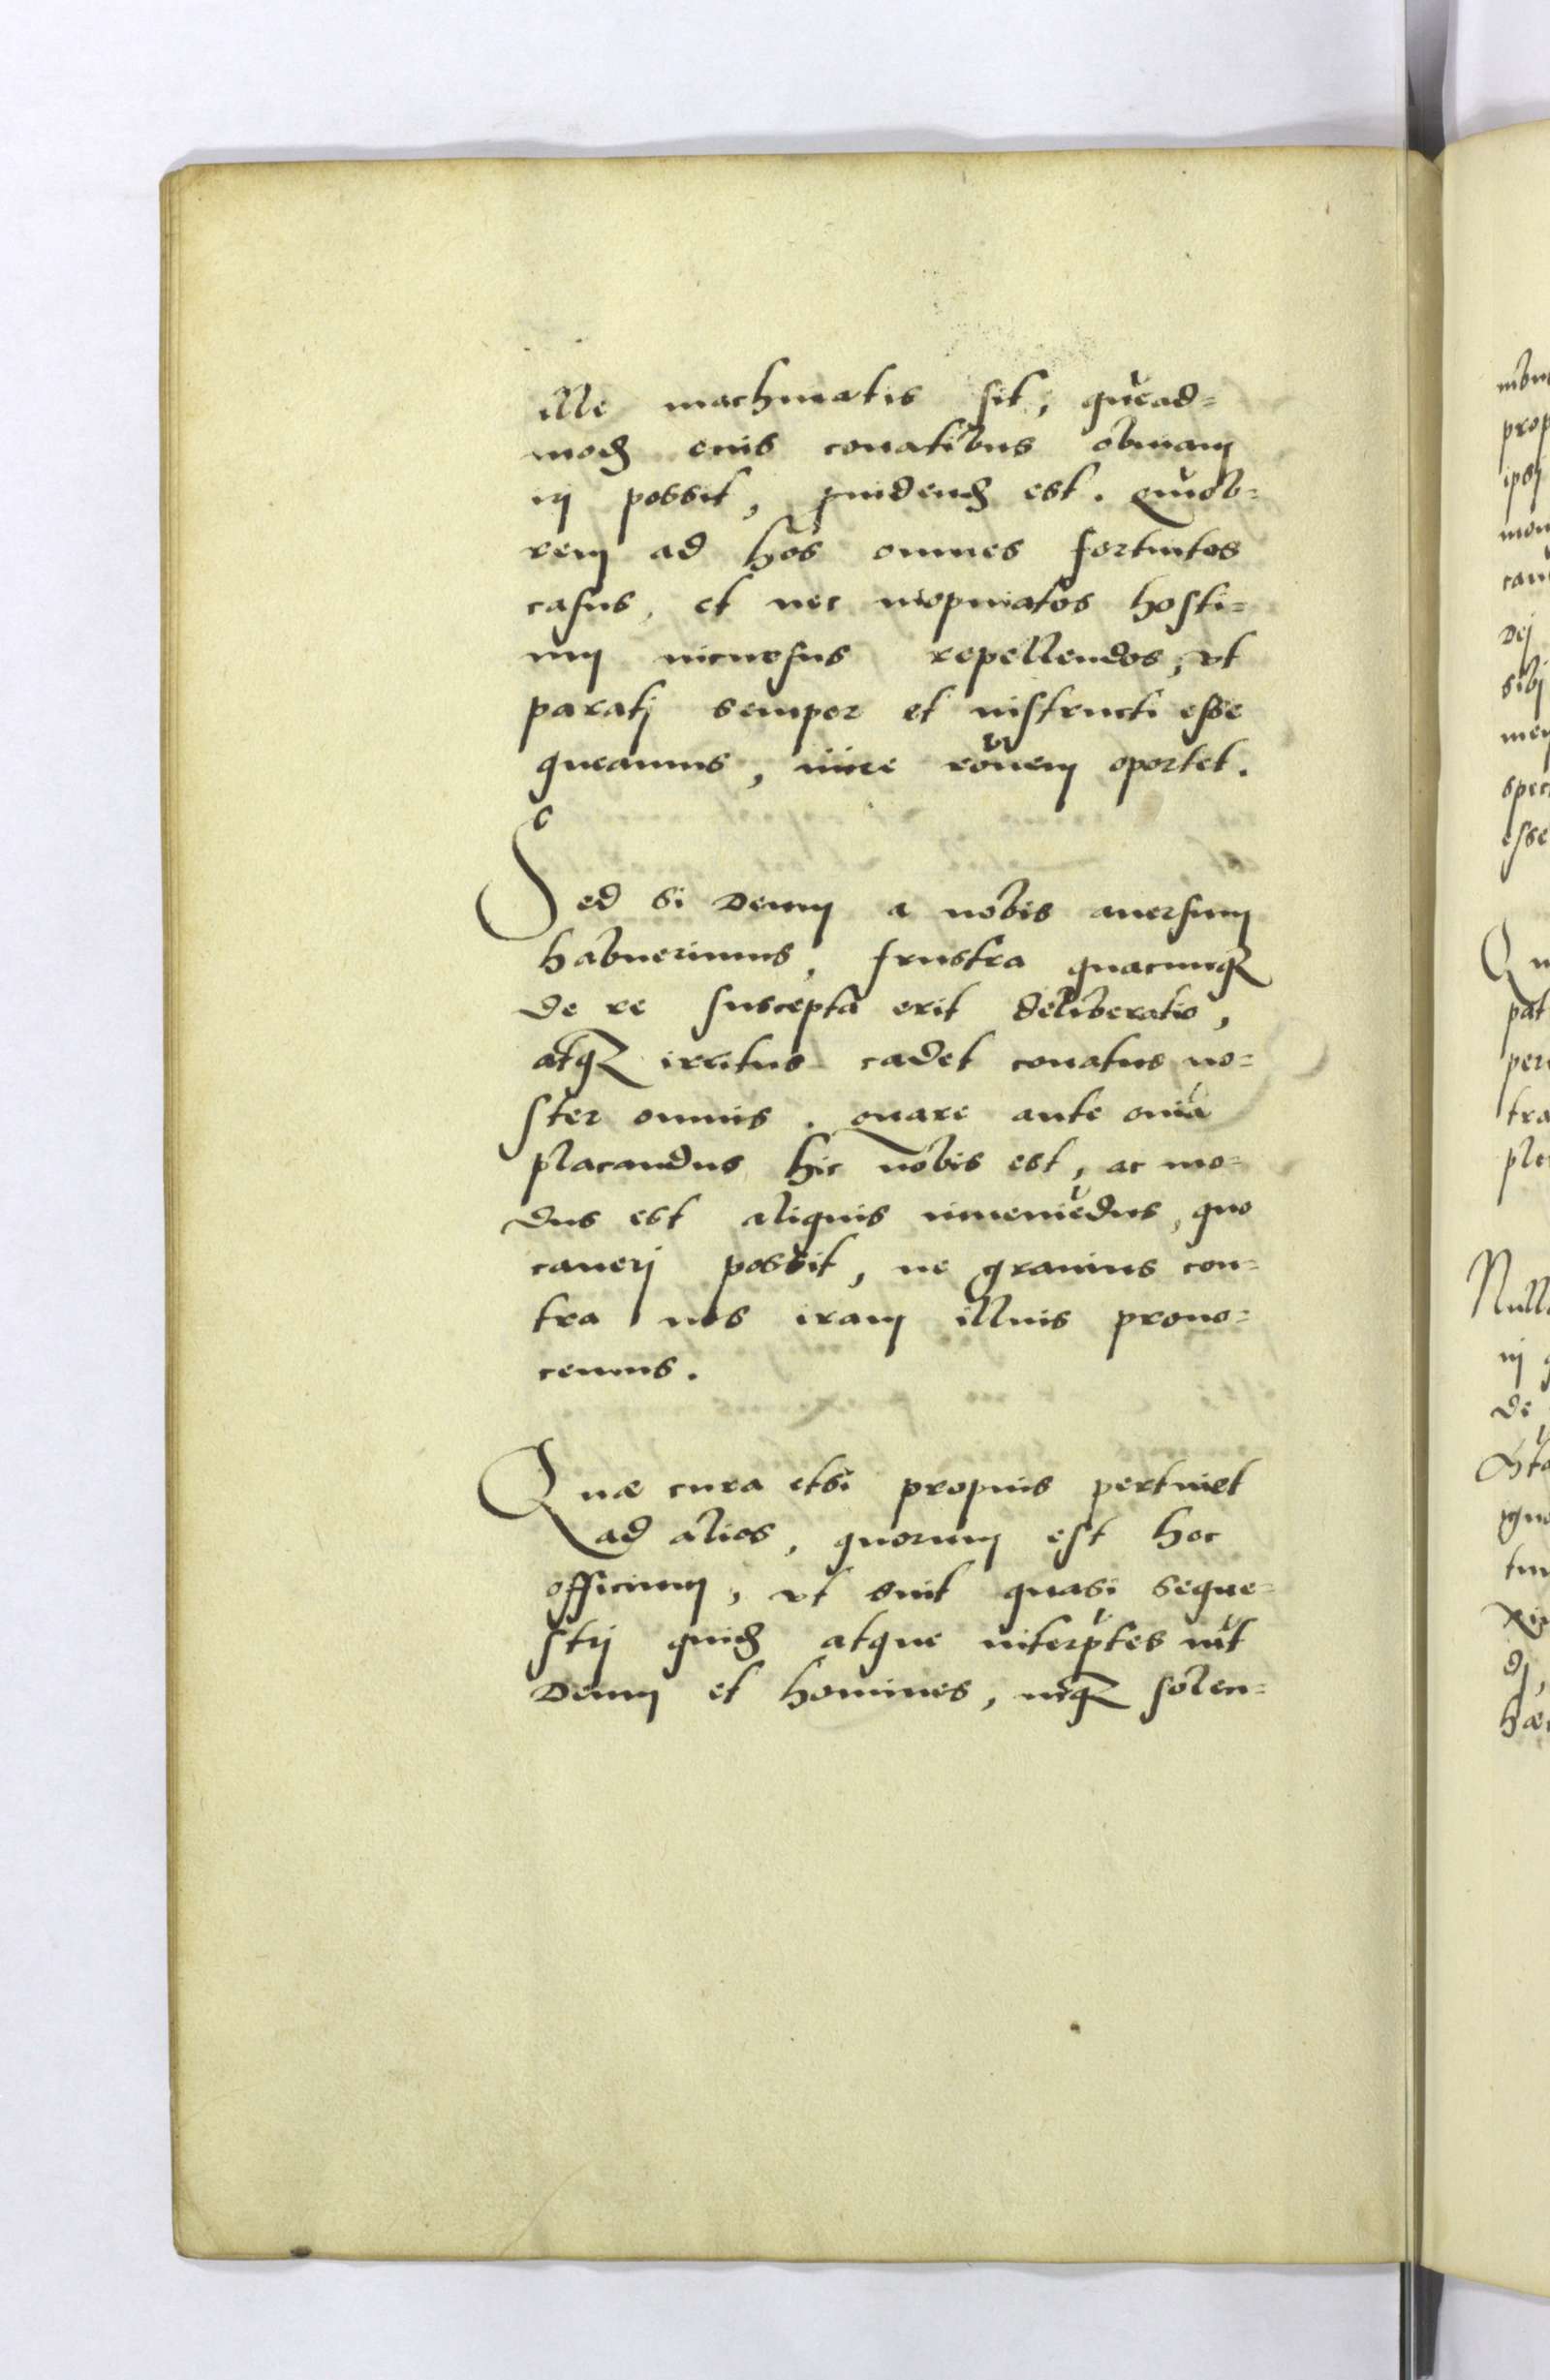 ille machinatus sit, quēad=
modȝ eius conatibus obuiam
iri possit, p̱uidendȝ est. Quāob=
rem ad hos omnes fortuitos
casus, et nec inopinatos hosti=
um incursus repellendos, vt
paratj semper et instructi esse
queamus, inire rōnem oportet.
Sed si Deum a nobis auersum
habuerimus, frustra quacunqȝ
de re suscepta erit deliberatio,
atqȝ irritus cadet conatus no=
ster omnis. Quare ante oīa
placandus hic nobis est, ac mo=
dus est aliquis inueniēdus, quo
cauerj possit, ne grauius con=
tra nos iram illius prouo=
cemus.
Quæ cura etsi propius pertinet
ad alios, quorum est hoc
officium, vt sint quasi seque=
strj quidȝ atque interp̄tes int̄
Deum et homines, iisqȝ solen=
Qu
pat
per
tra
Null
de